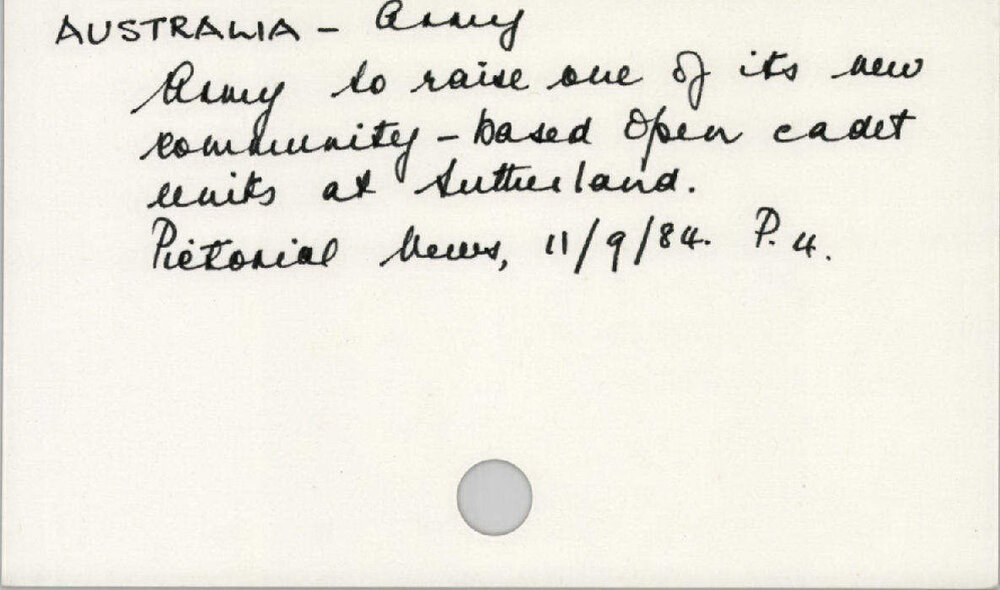 AUSTRALIA - Army
Army to raise one of its new
community-based open cadet
units at Sutherland.
Pictorial News, 11/9/84. P. 4.